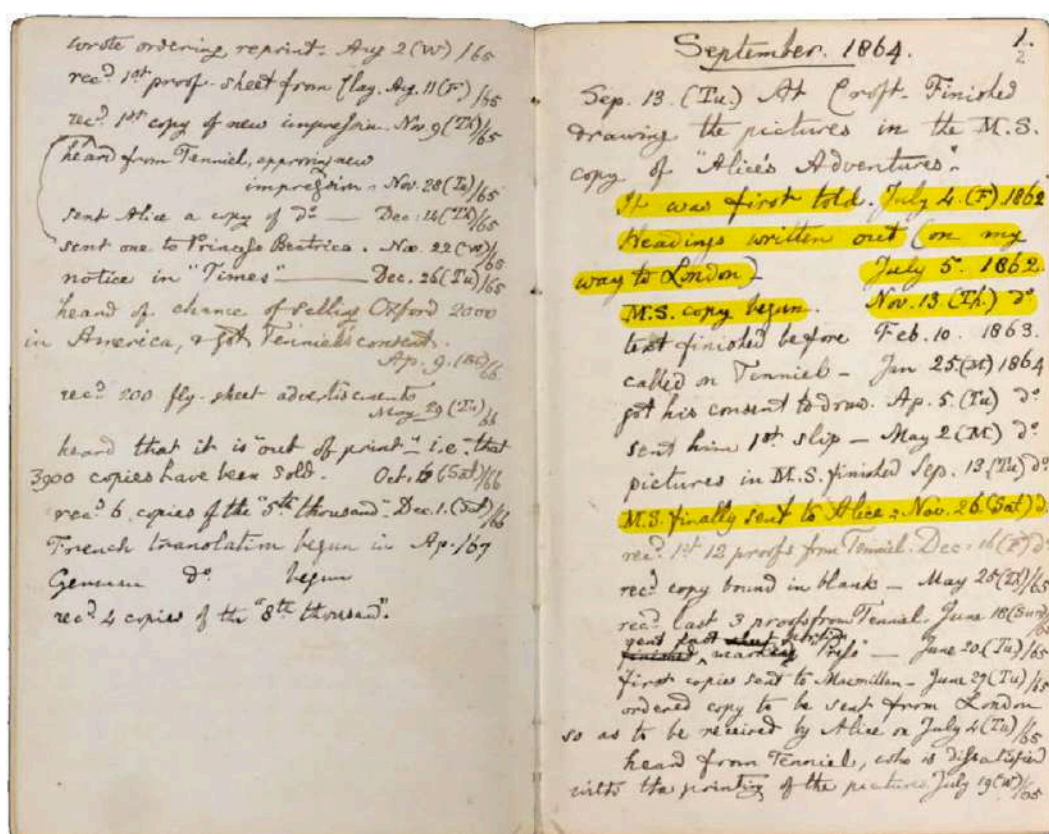 wrote ordering reprint. Aug 2 (W) /65
recd 1st proof-sheet from Clay. Aug. 11 (F) /65
recd 1st copy of new impression. Nov. 9 (Th) /65
heard from Tenniel, approving new
impression. Nov. 28 (Tu) /65
sent Alice a copy of do — Dec. 14 (Th) /65
sent one to Princess Beatrice. Nov. 22 (W) /65
notice in "Times" — Dec. 26 (Tu) /65
heard of chance of selling Oxford 2000
in America, & got Tenniel's consent.
Ap. 9. /66
recd 200 fly-sheet advertisements
May 29 (Tu) /66
heard that it is "out of print" i.e. that
3900 copies have been sold. Oct. (Sat) /66
recd 6 copies of the "5th thousand". Dec. 1. (Sat) /66
French translation begun in Ap. /67
German do begun
recd 4 copies of the "8th thousand".
September. 1864.
1.
2
Sep. 13. (Tu.) At Croft. Finished
drawing the pictures in the M.S.
copy of "Alice's Adventures".
It was first told. July 4. (F.) 1862
Headings written out (on my
way to London) July 5. 1862
M.S. copy begun. Nov. 13 (Th.) do
text finished before Feb. 10. 1863.
called on Tenniel — Jan 25. (M) 1864
got his consent to draw. Ap. 5. (Tu) do
sent him 1st slip — May 2 (M) do
pictures in M.S. finished Sep. 13. (Tu) do
M.S. finally sent to Alice. Nov. 26. (Sat) d.
recd 1st 12 proofs from Tenniel. Dec. 16 (F) do
recd copy bound in blank — May 25 (Th) /65
recd last 3 proofs from Tenniel. June 18 (Sun) /65
sent last sheet
finished, Press — June 20. (Tu) /65
first copies sent to Macmillan — June 27 (Tu) /65
ordered copy to be sent from London
so as to be received by Alice on July 4 (Tu) /65
heard from Tenniel, who is dissatisfied
with the printing of the pictures. July 19 (W) /65